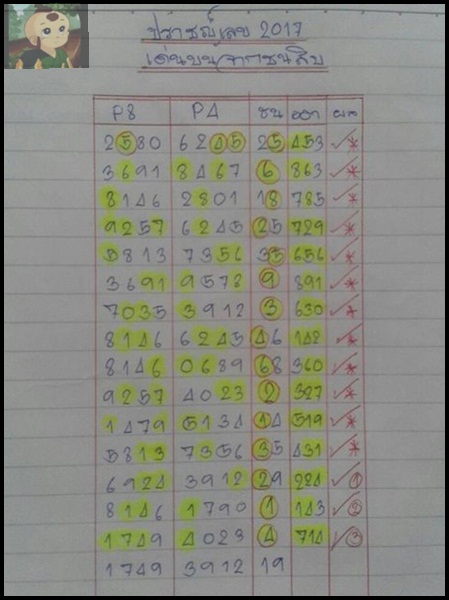 ปราชญ์เลข 2017
เด่นบนจากชนสิบ
P8 P4 ชน ออก ผล
2580 6245 25 453 ✓*
3691 8467 6 863 ✓*
8146 2801 18 785 ✓*
9257 6245 25 729 ✓*
5813 7356 35 656 ✓*
3691 9578 9 891 ✓*
7035 3912 3 630 ✓*
8146 6245 46 142 ✓*
8146 0689 68 360 ✓*
9257 4023 2 327 ✓*
1479 5134 14 519 ✓*
5813 7356 35 431 ✓*
6924 3912 29 224 ✓①
8146 1790 1 143 ✓②
1749 4023 4 714 ✓③
1749 3912 19